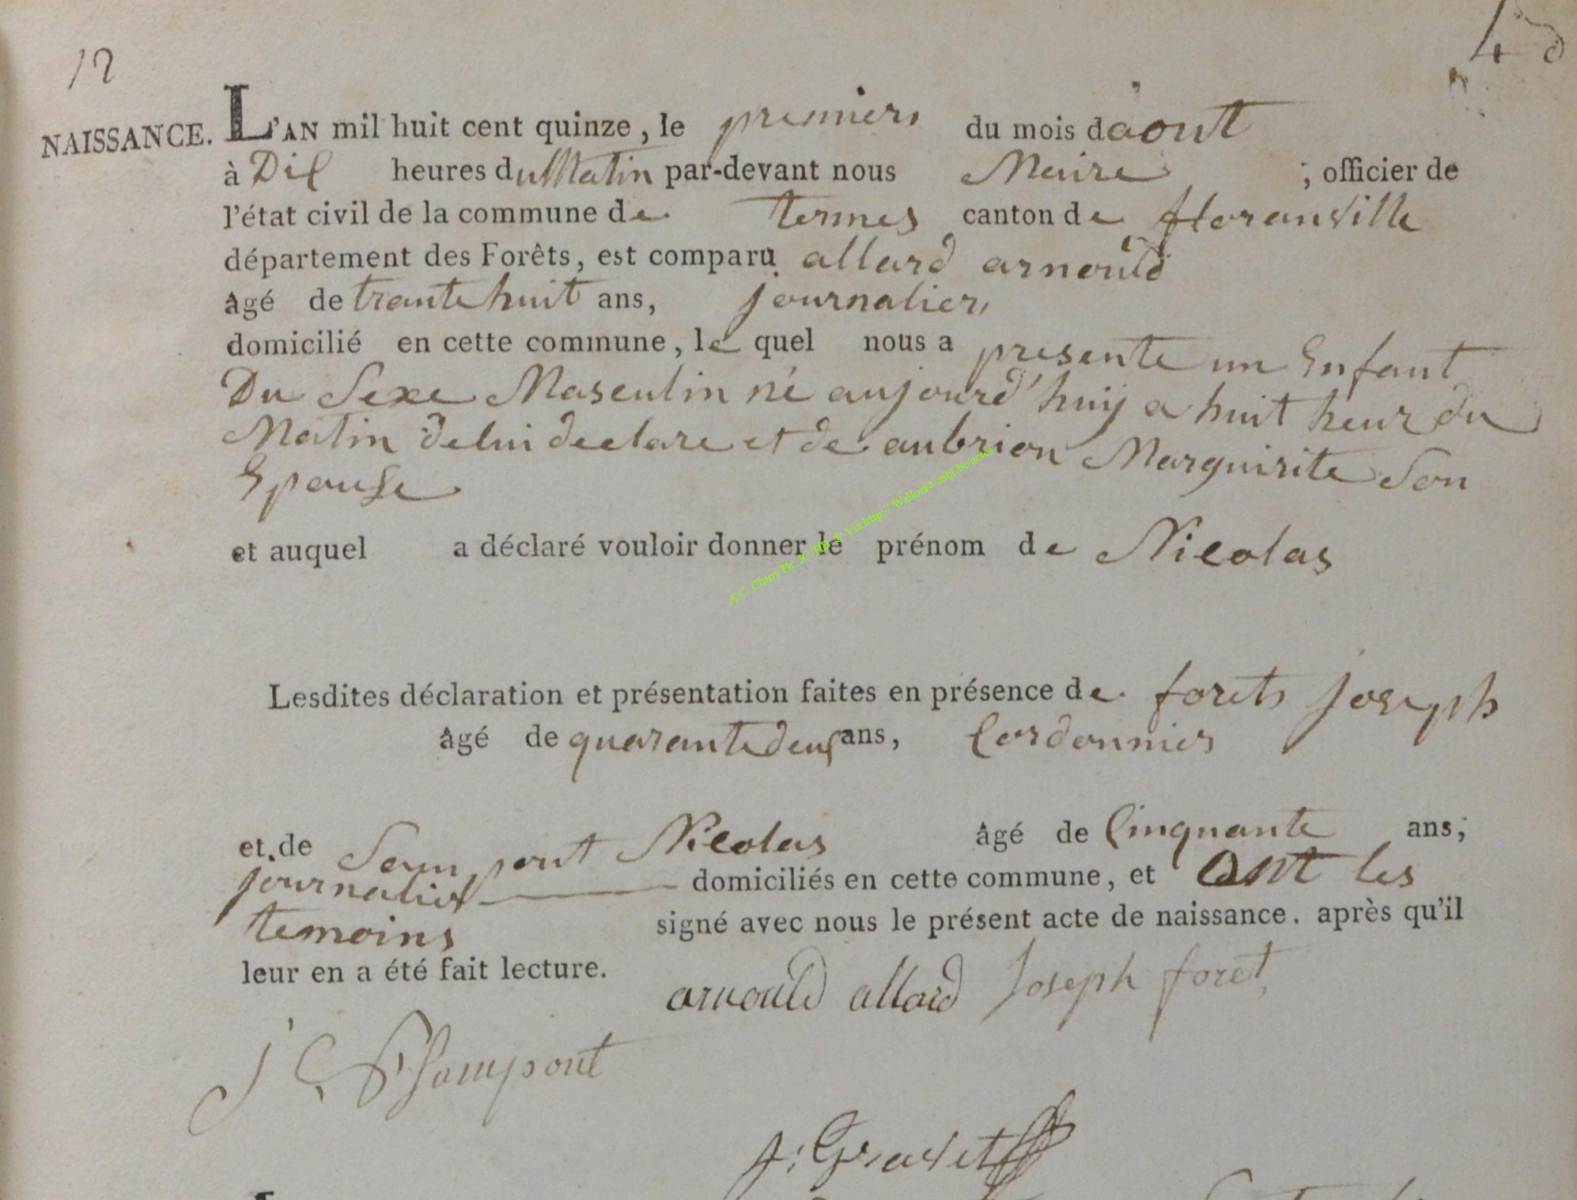 12
NAISSANCE. L'AN mil huit cent quinze, le premier du mois daout
à Dix heures du Matin par-devant nous Maire ; officier de
l'état civil de la commune de termes canton de floranville
département des Forêts, est comparu allard arnould
âgé de trante huit ans, journalier
domicilié en cette commune, le quel nous a presenté un Enfant
Du Sexe Masculin né aujourd'huy a huit heur du
Matin de lui declare et de aubrion Marguirite Son
Epouse
et auquel a déclaré vouloir donner le prénom de Nicolas
Lesdites déclaration et présentation faites en présence de forets joseph
âgé de quarante deux ans, Cordonnier
et de Sampont Nicolas âgé de Cinquante ans;
journalier domiciliés en cette commune, et ont les
temoins signé avec nous le présent acte de naissance. après qu'il
leur en a été fait lecture.
arnould allard Joseph foret
Sampont